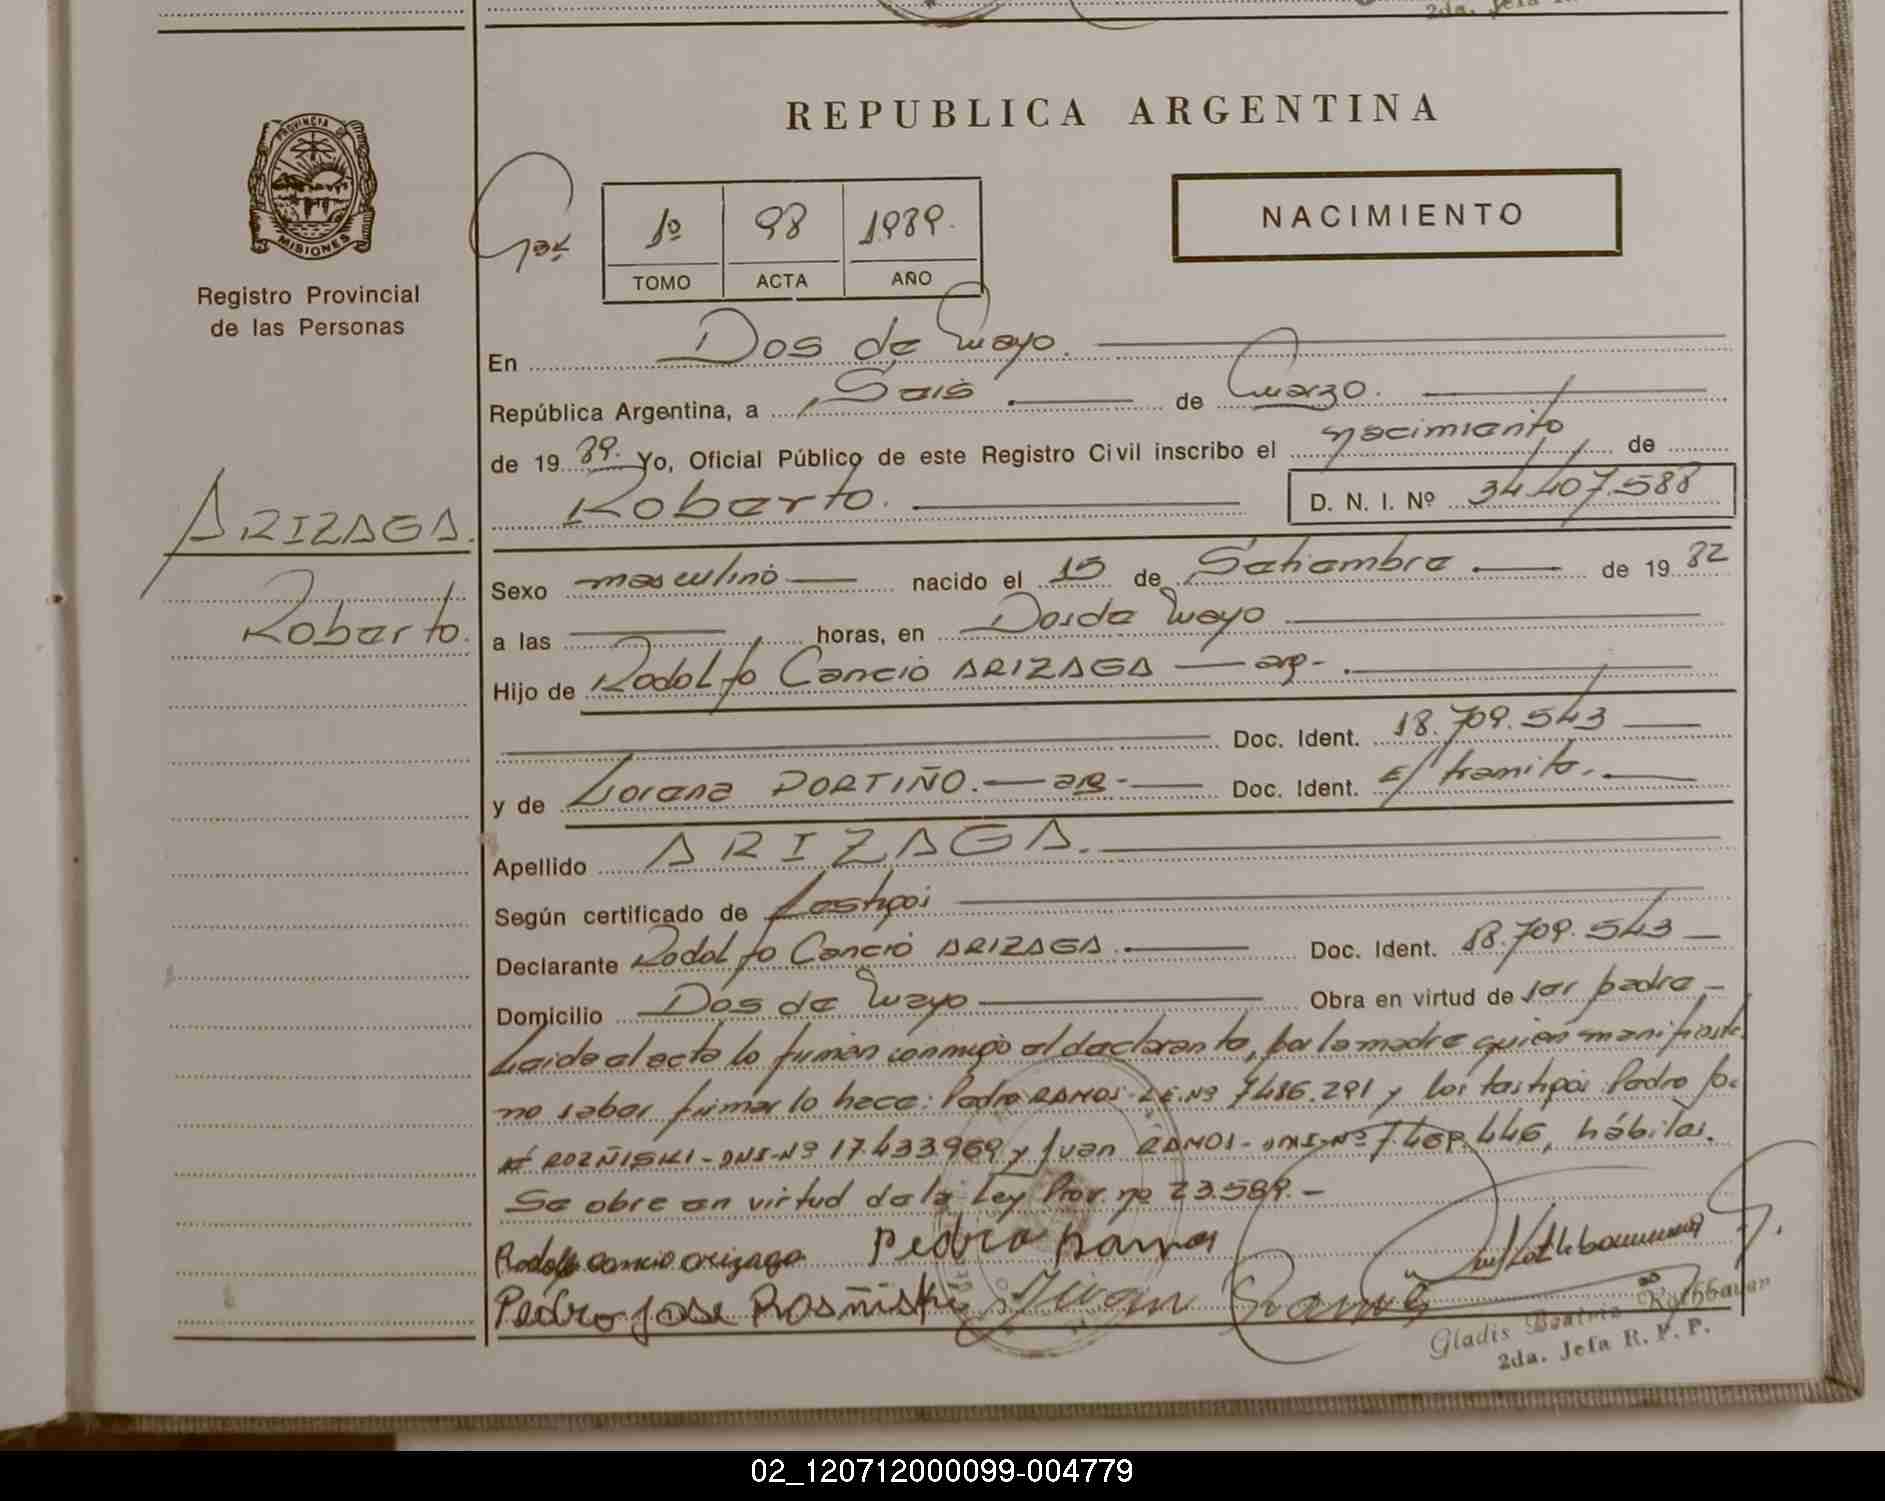 PROVINCIA DE
MISIONES
Registro Provincial
de las Personas
ARIZAGA.
Roberto.
REPUBLICA ARGENTINA
1º 98 1989.
TOMO ACTA AÑO
NACIMIENTO
En Dos de Mayo.
República Argentina, a Seis de Marzo.
de 19 89. Yo, Oficial Público de este Registro Civil inscribo el nacimiento de
Roberto. D. N. I. Nº 34.407.588
Sexo masculino nacido el 15 de Setiembre de 19 82
a las horas, en Dos de Mayo
Hijo de Rodolfo Cancio ARIZAGA arg-.
Doc. Ident. 18.709.543
y de Lorena PORTIÑO. arg- Doc. Ident. E/ tramite.
Apellido ARIZAGA.
Según certificado de testigos
Declarante Rodolfo Cancio ARIZAGA. Doc. Ident. 18.709.543
Domicilio Dos de Mayo Obra en virtud de ser padre.-
Leida el acta lo firman conmigo el declarante, por la madre quien manifiesta
no saber firmar lo hace: Pedro RAMOS-LE.Nº 7486.291 y los testigos: Pedro Jo-
sé ROZÑISKI-DNI-Nº 17.433.969 y Juan RAMOS-DNI-Nº 7.469.446, hábiles.
Se obre en virtud de la Ley Prov. nº 23.589.-
Rodolfo cancio arizaga Pedro Ramos
Pedro Jose Rosñiski Juan Ramos
Gladis Beatriz Rathbauer
2da. Jefa R. P. P.
02_120712000099-004779